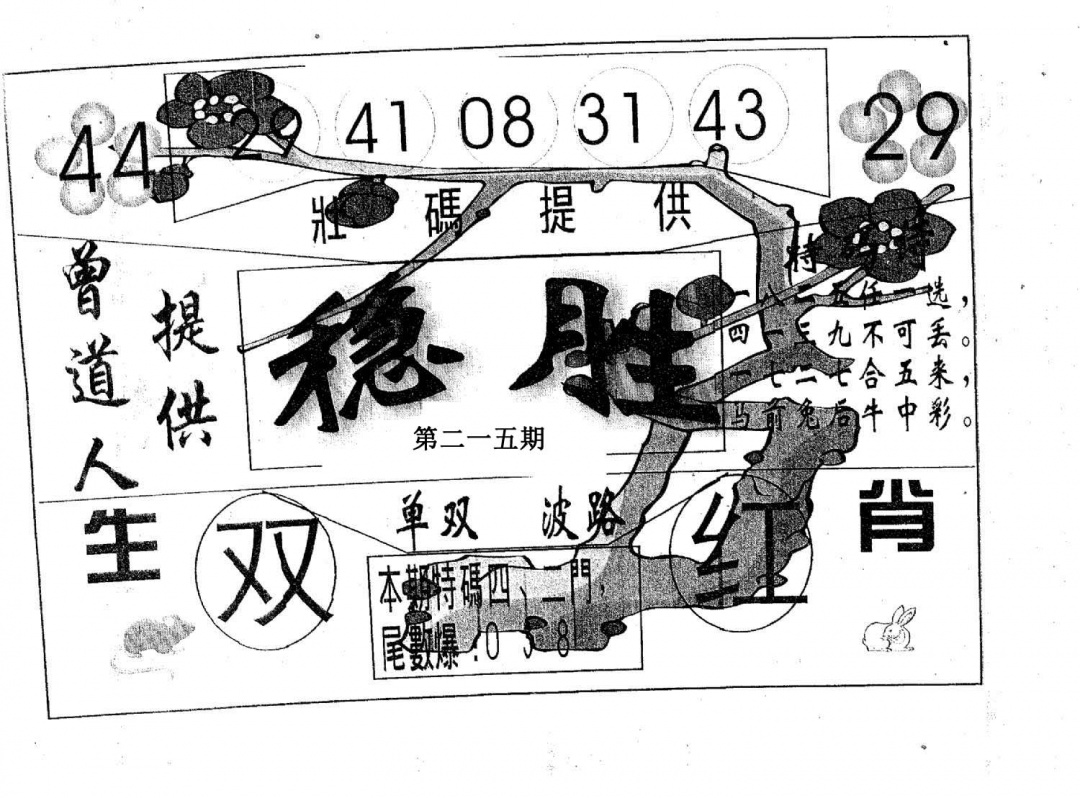 44 29 41 08 31 43 29
壯碼提供
曾道人
提供
稳胜
第二一五期
特
一八二五任一选，
四一三九不可丢。
一七二七合五来，
马前兔后牛中彩。
生肖
单双 波路
双
红
本期特碼四、二門，
尾數爆：0 3 8